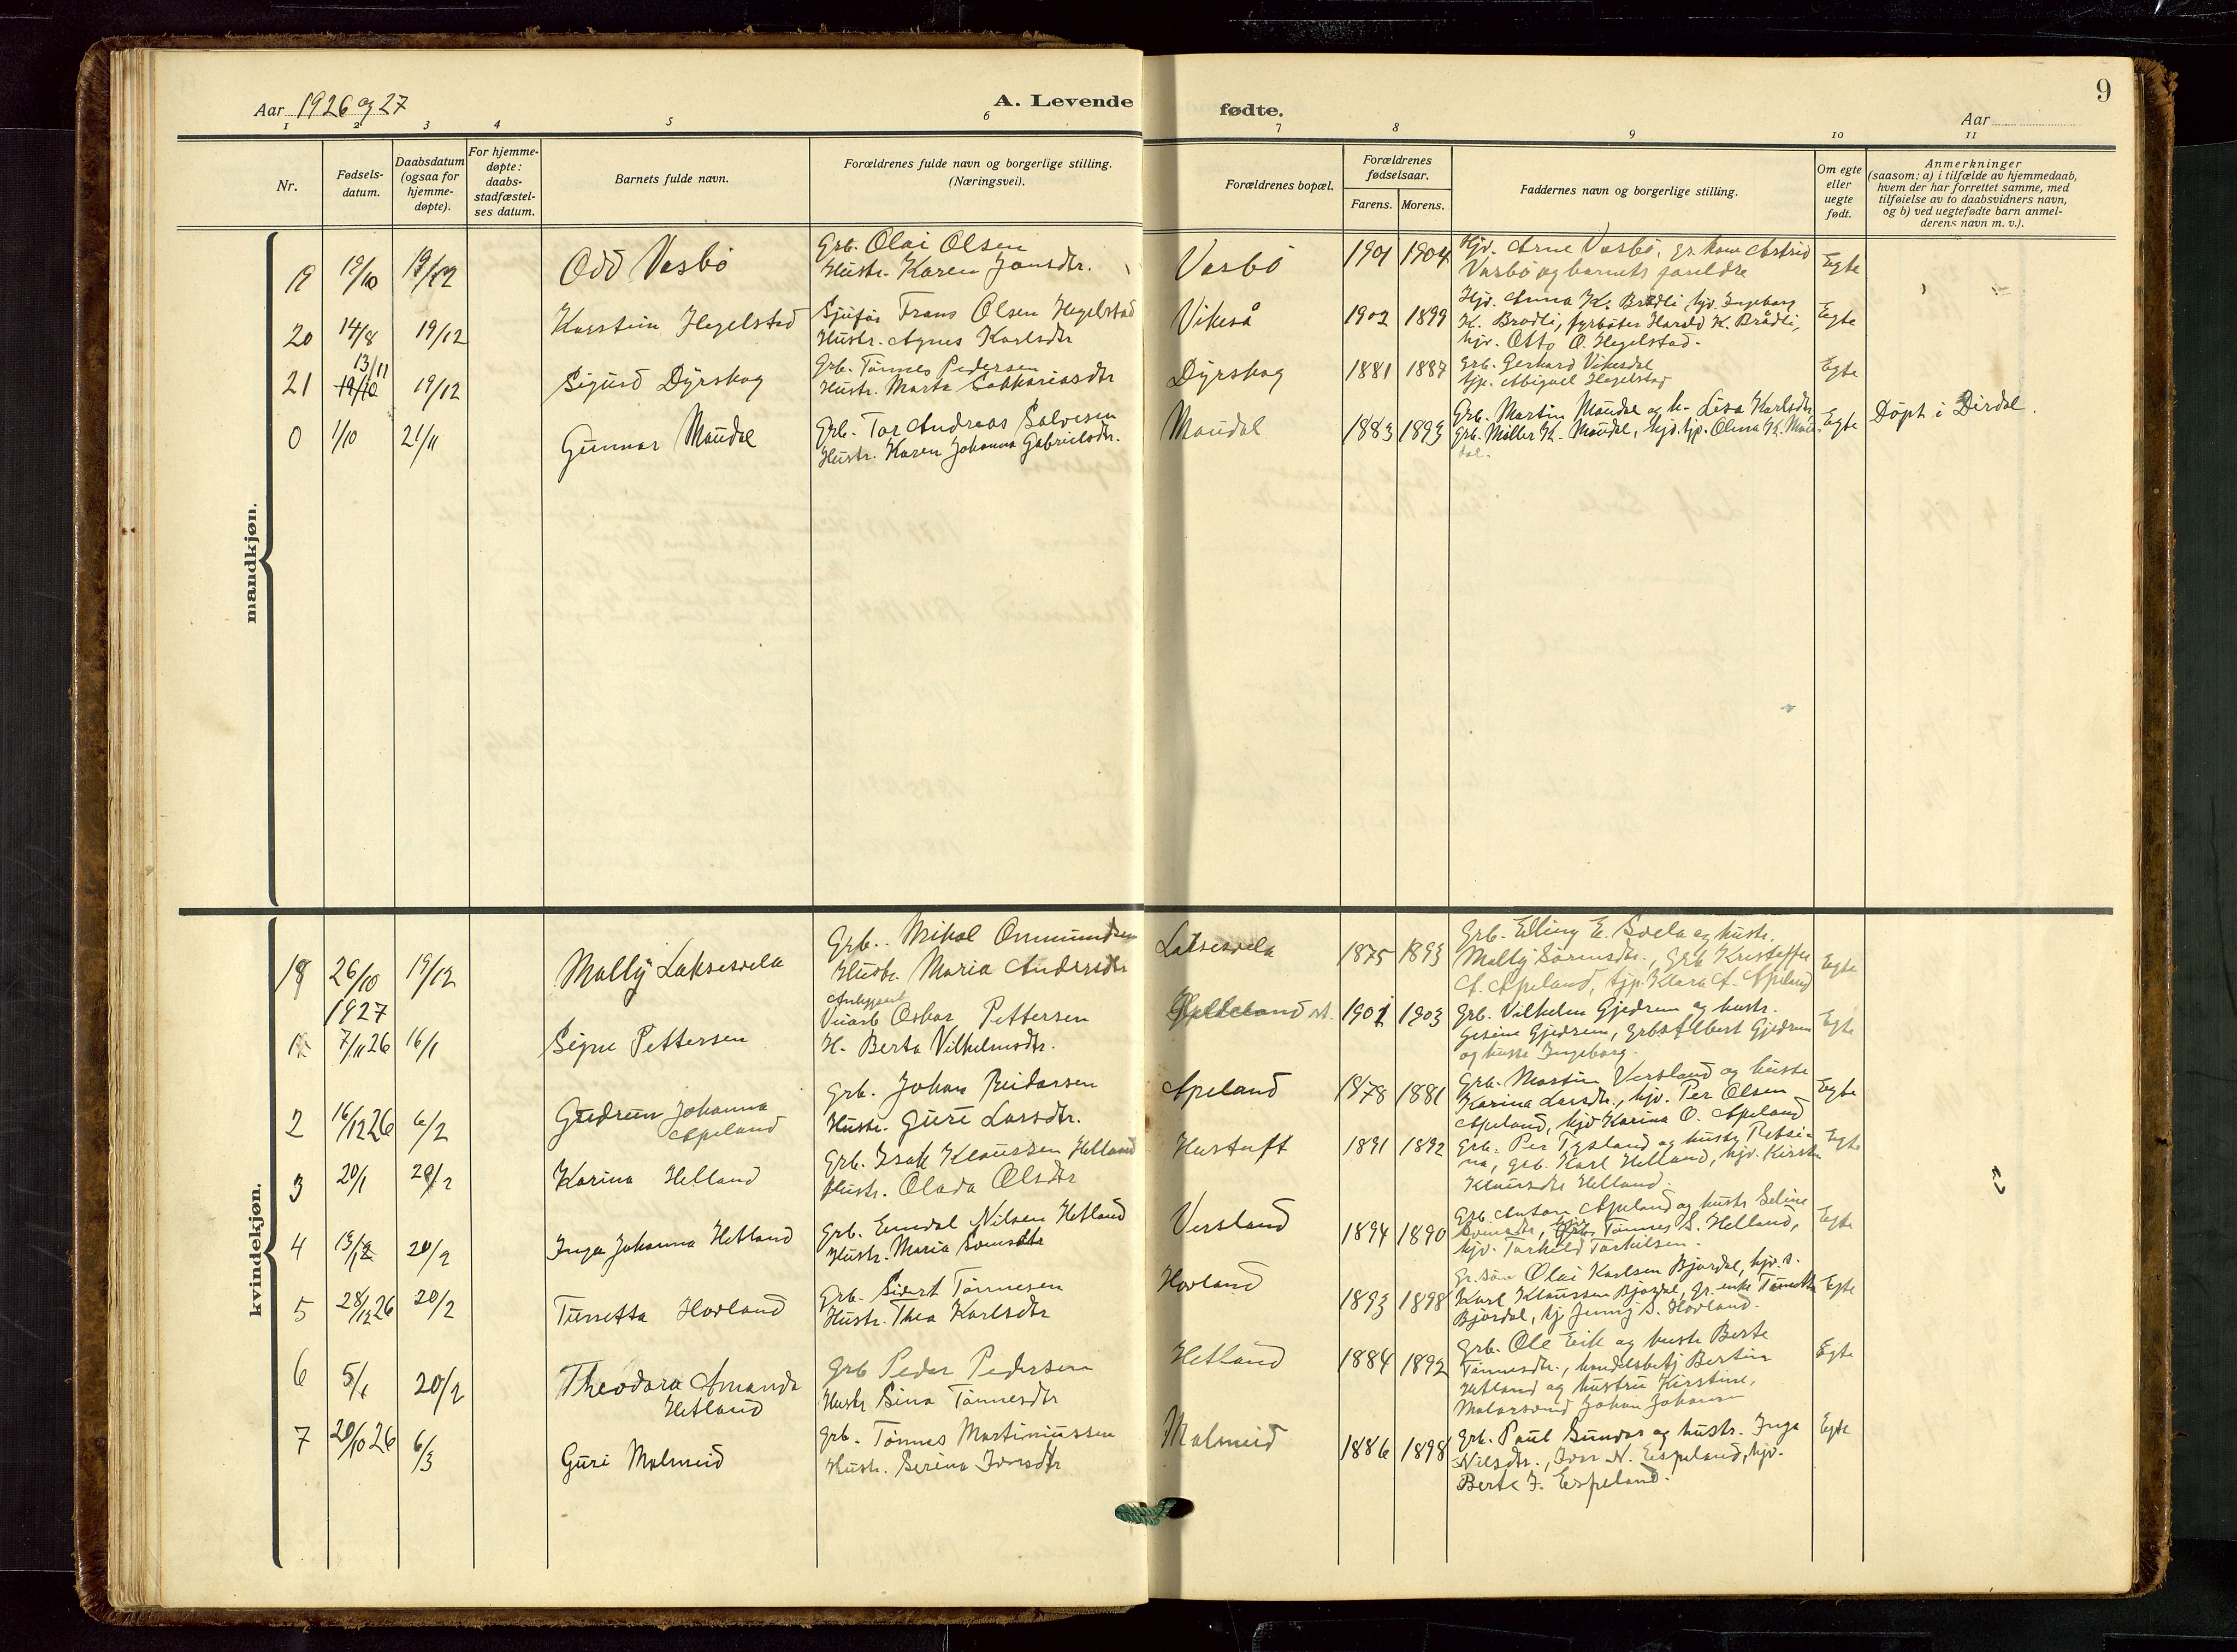 Aar 1926 og 27
A. Levende
fødte.
9
Aar
1 2 3 4 5 6 7 8 9 10 11
Nr.
Fødsels-
datum.
Daabsdatum
(ogsaa for
hjemme-
døpte).
For hjemme-
døpte:
daabs-
stadfæstel-
ses datum.
Barnets fulde navn.
Forældrenes fulde navn og borgerlige stilling.
(Næringsvei).
Forældrenes bopæl.
Forældrenes
fødselsaar.
Farens. Morens.
Faddernes navn og borgerlige stilling.
Om egte
eller
uegte
født.
Anmerkninger
(saasom: a) i tilfælde av hjemmedaab,
hvem der har forrettet samme, med
tilføielse av to daabsvidners navn,
og b) ved uegtefødte barn anmel-
derens navn m. v.).
mandkjøn.
19 12/10 19/12 Odd Vasbö
Grb. Olai Olsen
Hustr. Karen Jonsdtr.
Vasbö 1901 1904
Hjv. Arne Vasbö, gr. kone Astrid
Vasbö og barnets foreldre
Egte
20 14/8 19/12 Karstein Hegelstad
Sjuför Frans Olsen Hegelstad
Hustr. Agnes Karlsdtr
Vikeså 1902 1899
Hjv. Anna K. Brådli, hjv. Ingeborg
K. Brådli, fyrböter Harald K. Brådli,
hjv. Otto O. Hegelstad.
Egte
21 13/11 19/12 Sigurd Dyrskog
Grb. Tönnes Pedersen
Hustr. Marta Sakkariasdtr
Dyrskog 1881 1887
Grb. Gerhard Vikesdal
tjp. Abigael Hegelstad
Egte
0 1/10 21/11 Gunnar Maudal
Grb. Tor Andreas Salvesen
Hustr. Karen Johanna Gabrielsdtr.
Maudal 1883 1893
Grb. Martin Maudal og h. Lisa Karlsdtr
Grb. Möller K. Maudal, hjv. tjp. Olina K. Mau-
dal.
Egte
Döpt i Dirdal.
kvindekjøn.
18 26/10 19/12 Mally Laksesvela
Grb. Mikal Ommundsen
Hustr. Maria Andersdtr
Laksesvela 1875 1893
Grb. Elling E. Svela og hustr.
Mally Sörensdtr., Grb. Kristoffer
A. Apeland, tjp. Klara A. Apeland
Egte
1927
1 7/11 26 16/1 Signe Pettersen
Oskar Pettersen
H. Berta Vilhelmsdtr.
Helleland st. 1901 1903
Grb. Vilhelm Gjedrem og hustr.
Gesine Gjedrem, Grb. Albert Gjedrem
og hustr Ingeborg.
Egte
2 16/12 26 6/2 Gudrun Johanna
Apeland
Grb. Johan Reidarsen
Hustr. Guri Larsdtr.
Apeland 1878 1881
Grb. Martin Versland og hustr
Karina Larsdtr., hjv. Per Olsen
Apeland, hjv Karina O. Apeland
Egte
3 20/1 20/2 Karina Helland
Grb. Isak Klaussen Helland
Hustr. Olada Olsdtr
Hustoft 1891 1892
Grb. Per Tysland og hustr Petsi-
na, grb. Karl Helland, hjv. Kirsten
Klausdtr Helland.
Egte
4 13/12 20/2 Inga Johanna Hetland
Grb. Emdal Nilsen Hetland
Hustr. Maria Svensdtr
Versland 1894 1890
Grb Anton Apeland og hustr Seline
Svensdtr, Tönnes S. Helland,
hjv. Torkild Torkilsen.
Egte
5 28/12 26 20/2 Tunetta Hovland
Grb. Sivert Tönnesen
Hustr. Thea Karlsdtr
Hovland 1893 1898
Gr. sön Olai Karlsen Bjordal, hjv. s.
Karl Klaussen Bjordal, gr. enke Tunetta
Bjordal, tj Jenny S. Hovland.
Egte
6 5/1 20/2 Theodora Amanda
Hetland
Grb Peder Pedersen
Hustr Sina Tönnesdtr
Hetland 1884 1892
Grb. Ole Eik og hustr Berte
Tönnesdtr., handelsbetj Bertin
Hetland og hustru Kirstine,
Malarsvend Johan Johansen
Egte
7 20/10 26 6/3 Guri Malmeid
Grb. Tönnes Martiniussen
Hustr. Serina Ivarsdtr
Malmeid 1886 1898
Grb. Paul Gundar og hustr. Inga
Nilsdtr., Ivar N. Espeland, hjv.
Berte J. Espeland.
Egte